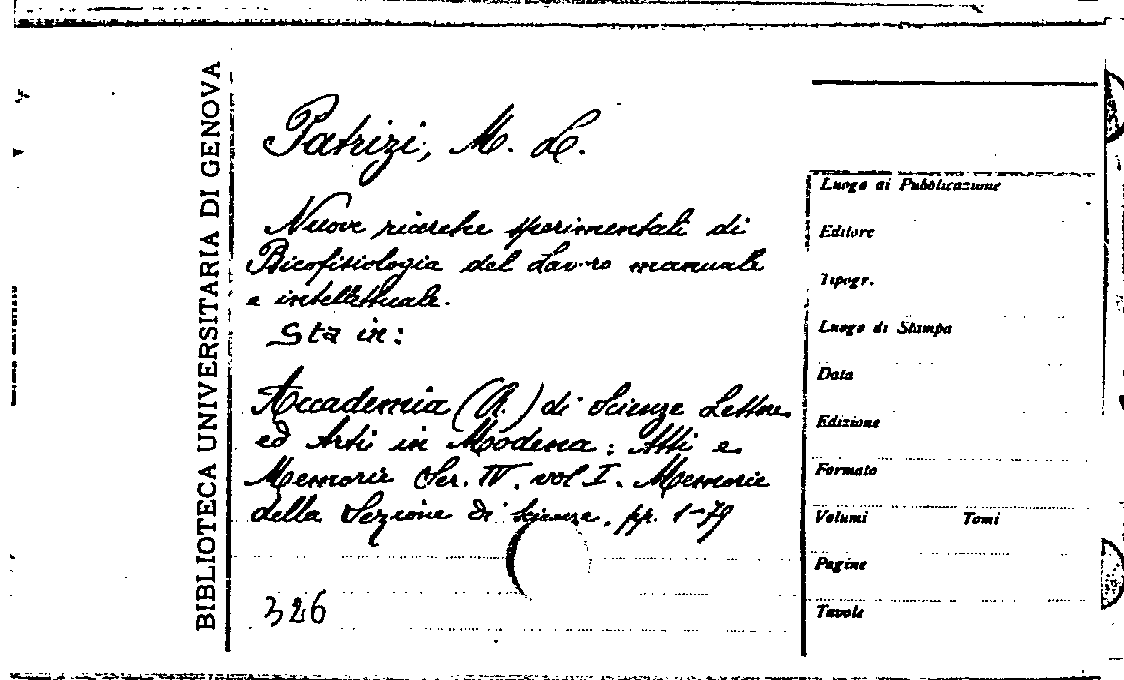 BIBLIOTECA UNIVERSITARIA DI GENOVA
Patrizi, M. L.
Nuove ricerche sperimentali di
Psicofisiologia del Lavoro manuale
e intellettuale.
Sta in:
Accademia (R.) di Scienze Lettere
ed Arti in Modena: Atti e
Memorie Ser. IV. vol I. Memorie
della Sezione di Scienze. pp. 1-79
326
Luogo di Pubblicazione
Editore
Tipogr.
Luogo di Stampa
Data
Edizione
Formato
Volumi Tomi
Pagine
Tavole